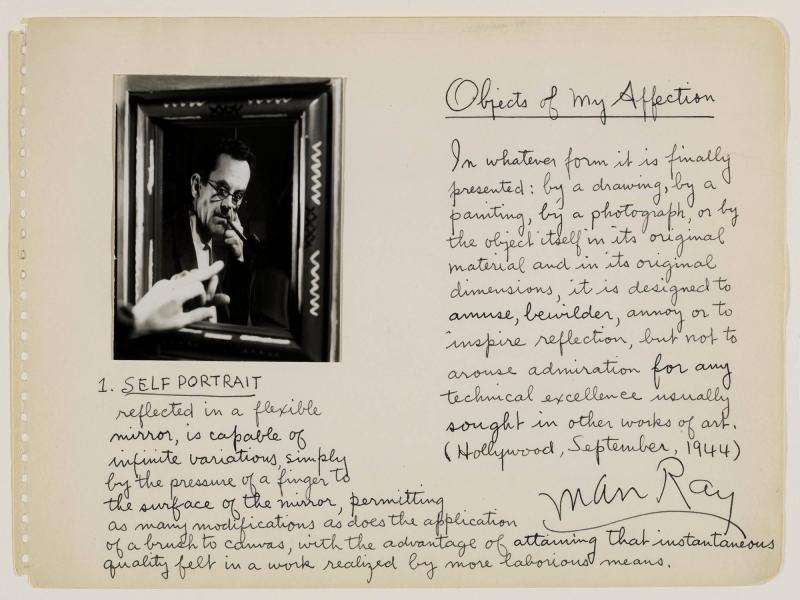 Objects of My Affection
In whatever form it is finally
presented: by a drawing, by a
painting, by a photograph, or by
the object itself in its original
material and in its original
dimensions, it is designed to
amuse, bewilder, annoy or to
inspire reflection, but not to
arouse admiration for any
technical excellence usually
sought in other works of art.
(Hollywood, September, 1944)
Man Ray
1. SELF PORTRAIT
reflected in a flexible
mirror, is capable of
infinite variations, simply
by the pressure of a finger to
the surface of the mirror, permitting
as many modifications as does the application
of a brush to canvas, with the advantage of attaining that instantaneous
quality felt in a work realized by more laborious means.